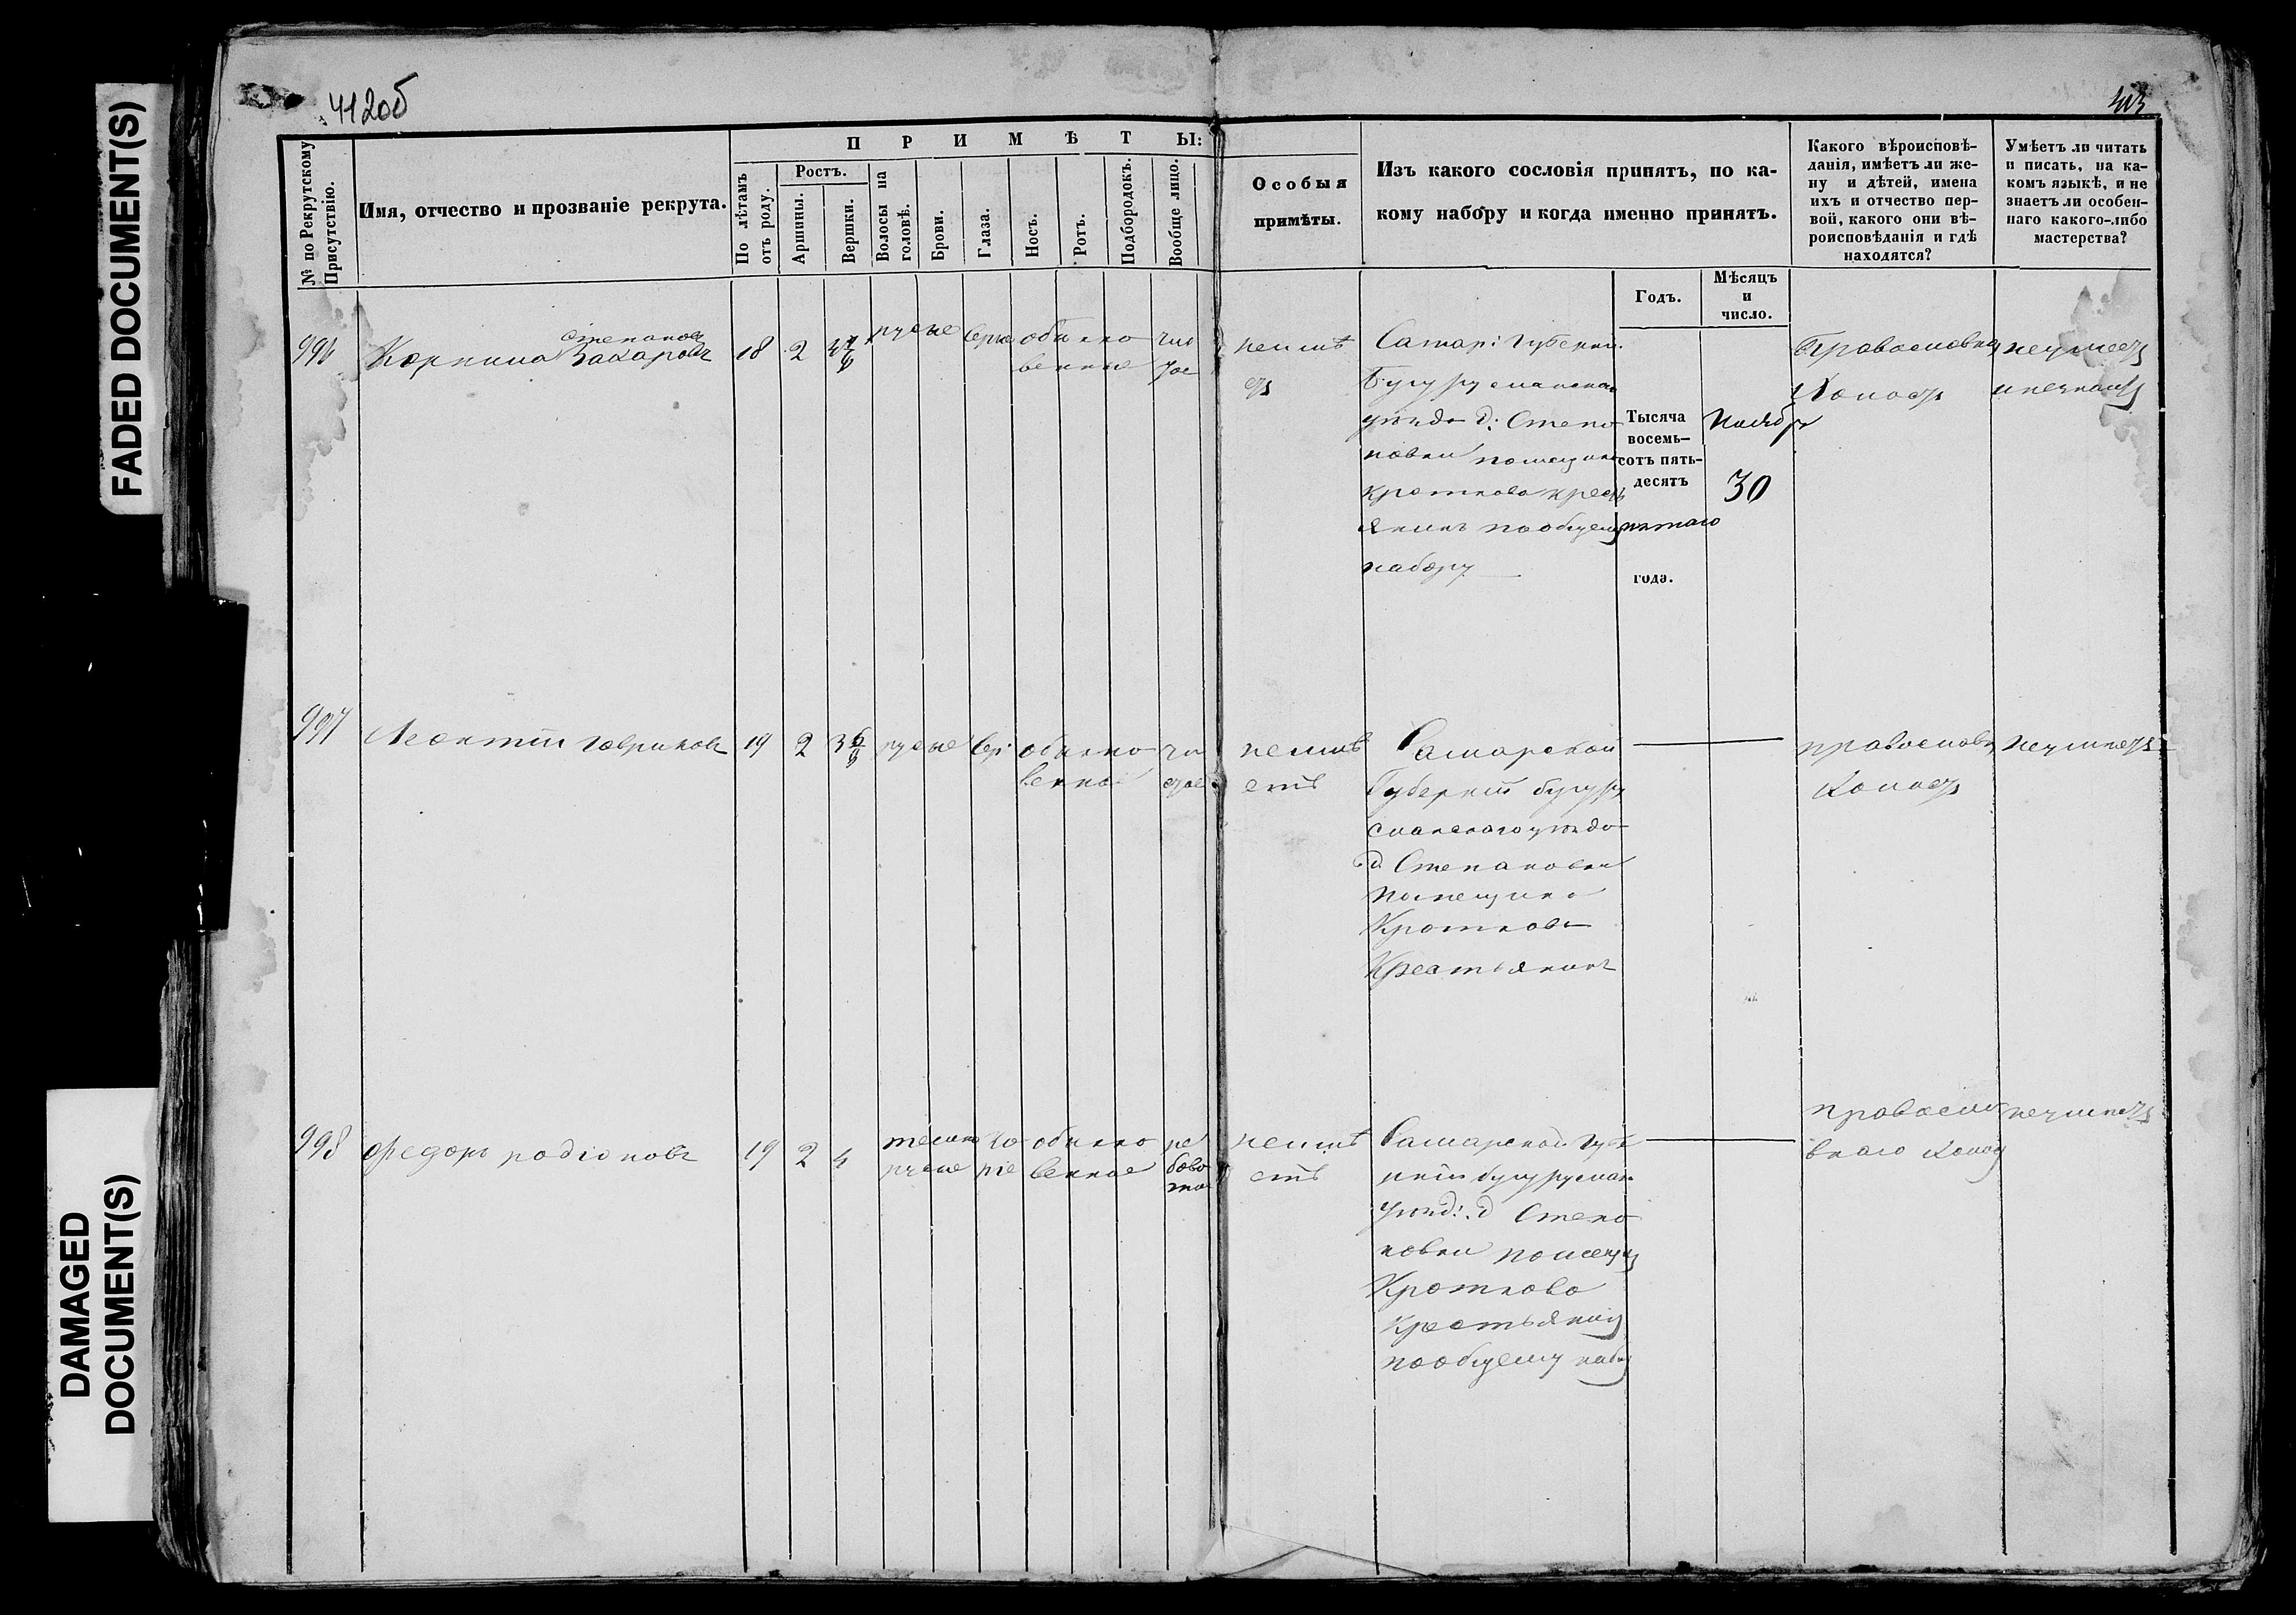 FADED DOCUMENT(S)
DAMAGED
DOCUMENT(S)
412об
413
П Р И М Ѣ Т Ы:
№ по Рекрутскому
Присутствію.
Имя, отчество и прозваніе рекрута.
По лѣтамъ
отъ роду.
Ростъ.
Аршины.
Вершки.
Волосы на
головѣ.
Брови.
Глаза.
Носъ.
Ротъ.
Подбородокъ.
Вообще лицо.
Особыя
примѣты.
Изъ какого сословія принятъ, по ка-
кому набору и когда именно принятъ.
Годъ.
Мѣсяцъ
и
число.
Какого вѣроисповѣ-
данія, имѣетъ ли же-
ну и дѣтей, имена
ихъ и отчество пер-
вой, какого они вѣ-
роисповѣданія и гдѣ
находятся?
Умѣетъ ли читать
и писать, на ка-
комъ языкѣ, и не
знаетъ ли особен-
наго какого-либо
мастерства?
996
Степановъ
Карпила Захаровъ
18
2
русые
обыкно
венные
чис
тое
неимѣ
етъ
Самар: Губерніи
Бугурусланска
уѣзда д: Степа
новки помещика
Кроткова крест
янинъ пообщему
набору
Тысяча
восемь-
сотъ пять-
десятъ
пятаго
года.
Ноября
30
Православна
Холостъ
неумеетъ
997
Леонтій Гавриловъ
19
2
3 6/8
русые
сер:
обыкно
венные
чи
стое
неимѣ
етъ
Самарской
Губерніи бугуру
сланскаго уѣзда
д. Степановки
помещика
Кроткова
Крестьянинъ
православн
Холостъ
неумѣетъ
998
Федоръ Родіоновъ
19
2
4
темно
русые
ка
ріе
обыкно
венные
ре
бова
тое
неимѣ
етъ
Самарской Губе
рніи бугуруслан
уѣзд: д Степа
новки помещи
Кроткова
крестьянинъ
пообщему набо
правосла
внаго холос
неумѣетъ